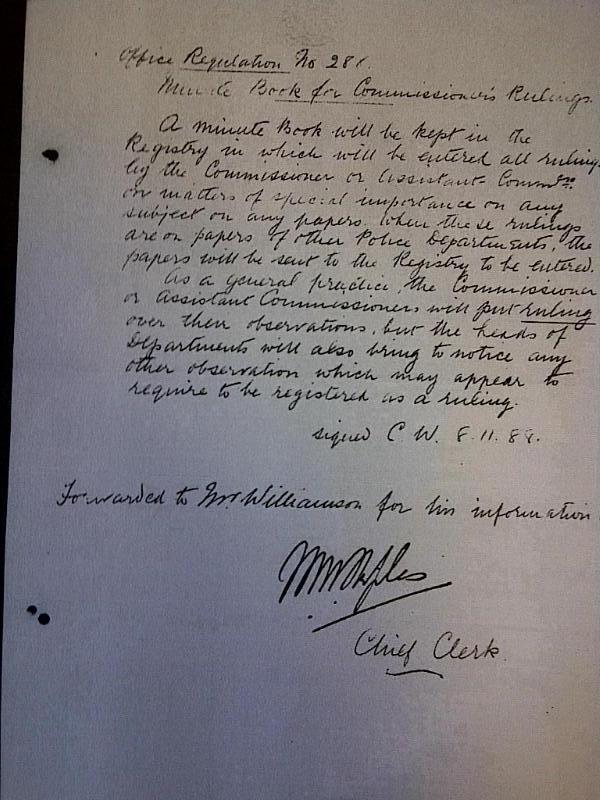 Office Regulation No 28
Minute Book for Commissioner's Rulings.
A minute Book will be kept in the
Registry in which will be entered all ruling
by the Commissioner or Assistant Commrs
on matters of special importance on any
subject on any papers. When these rulings
are on papers of other Police Departments, the
papers will be sent to the Registry to be entered.
As a general practice, the Commissioner
or Assistant Commissioners will put ruling
over their observations, but the heads of
Departments will also bring to notice any
other observation which may appear to
require to be registered as a ruling.
signed C. W. 8.11.88.
Forwarded to Mr Williamson for his information
Chief Clerk.